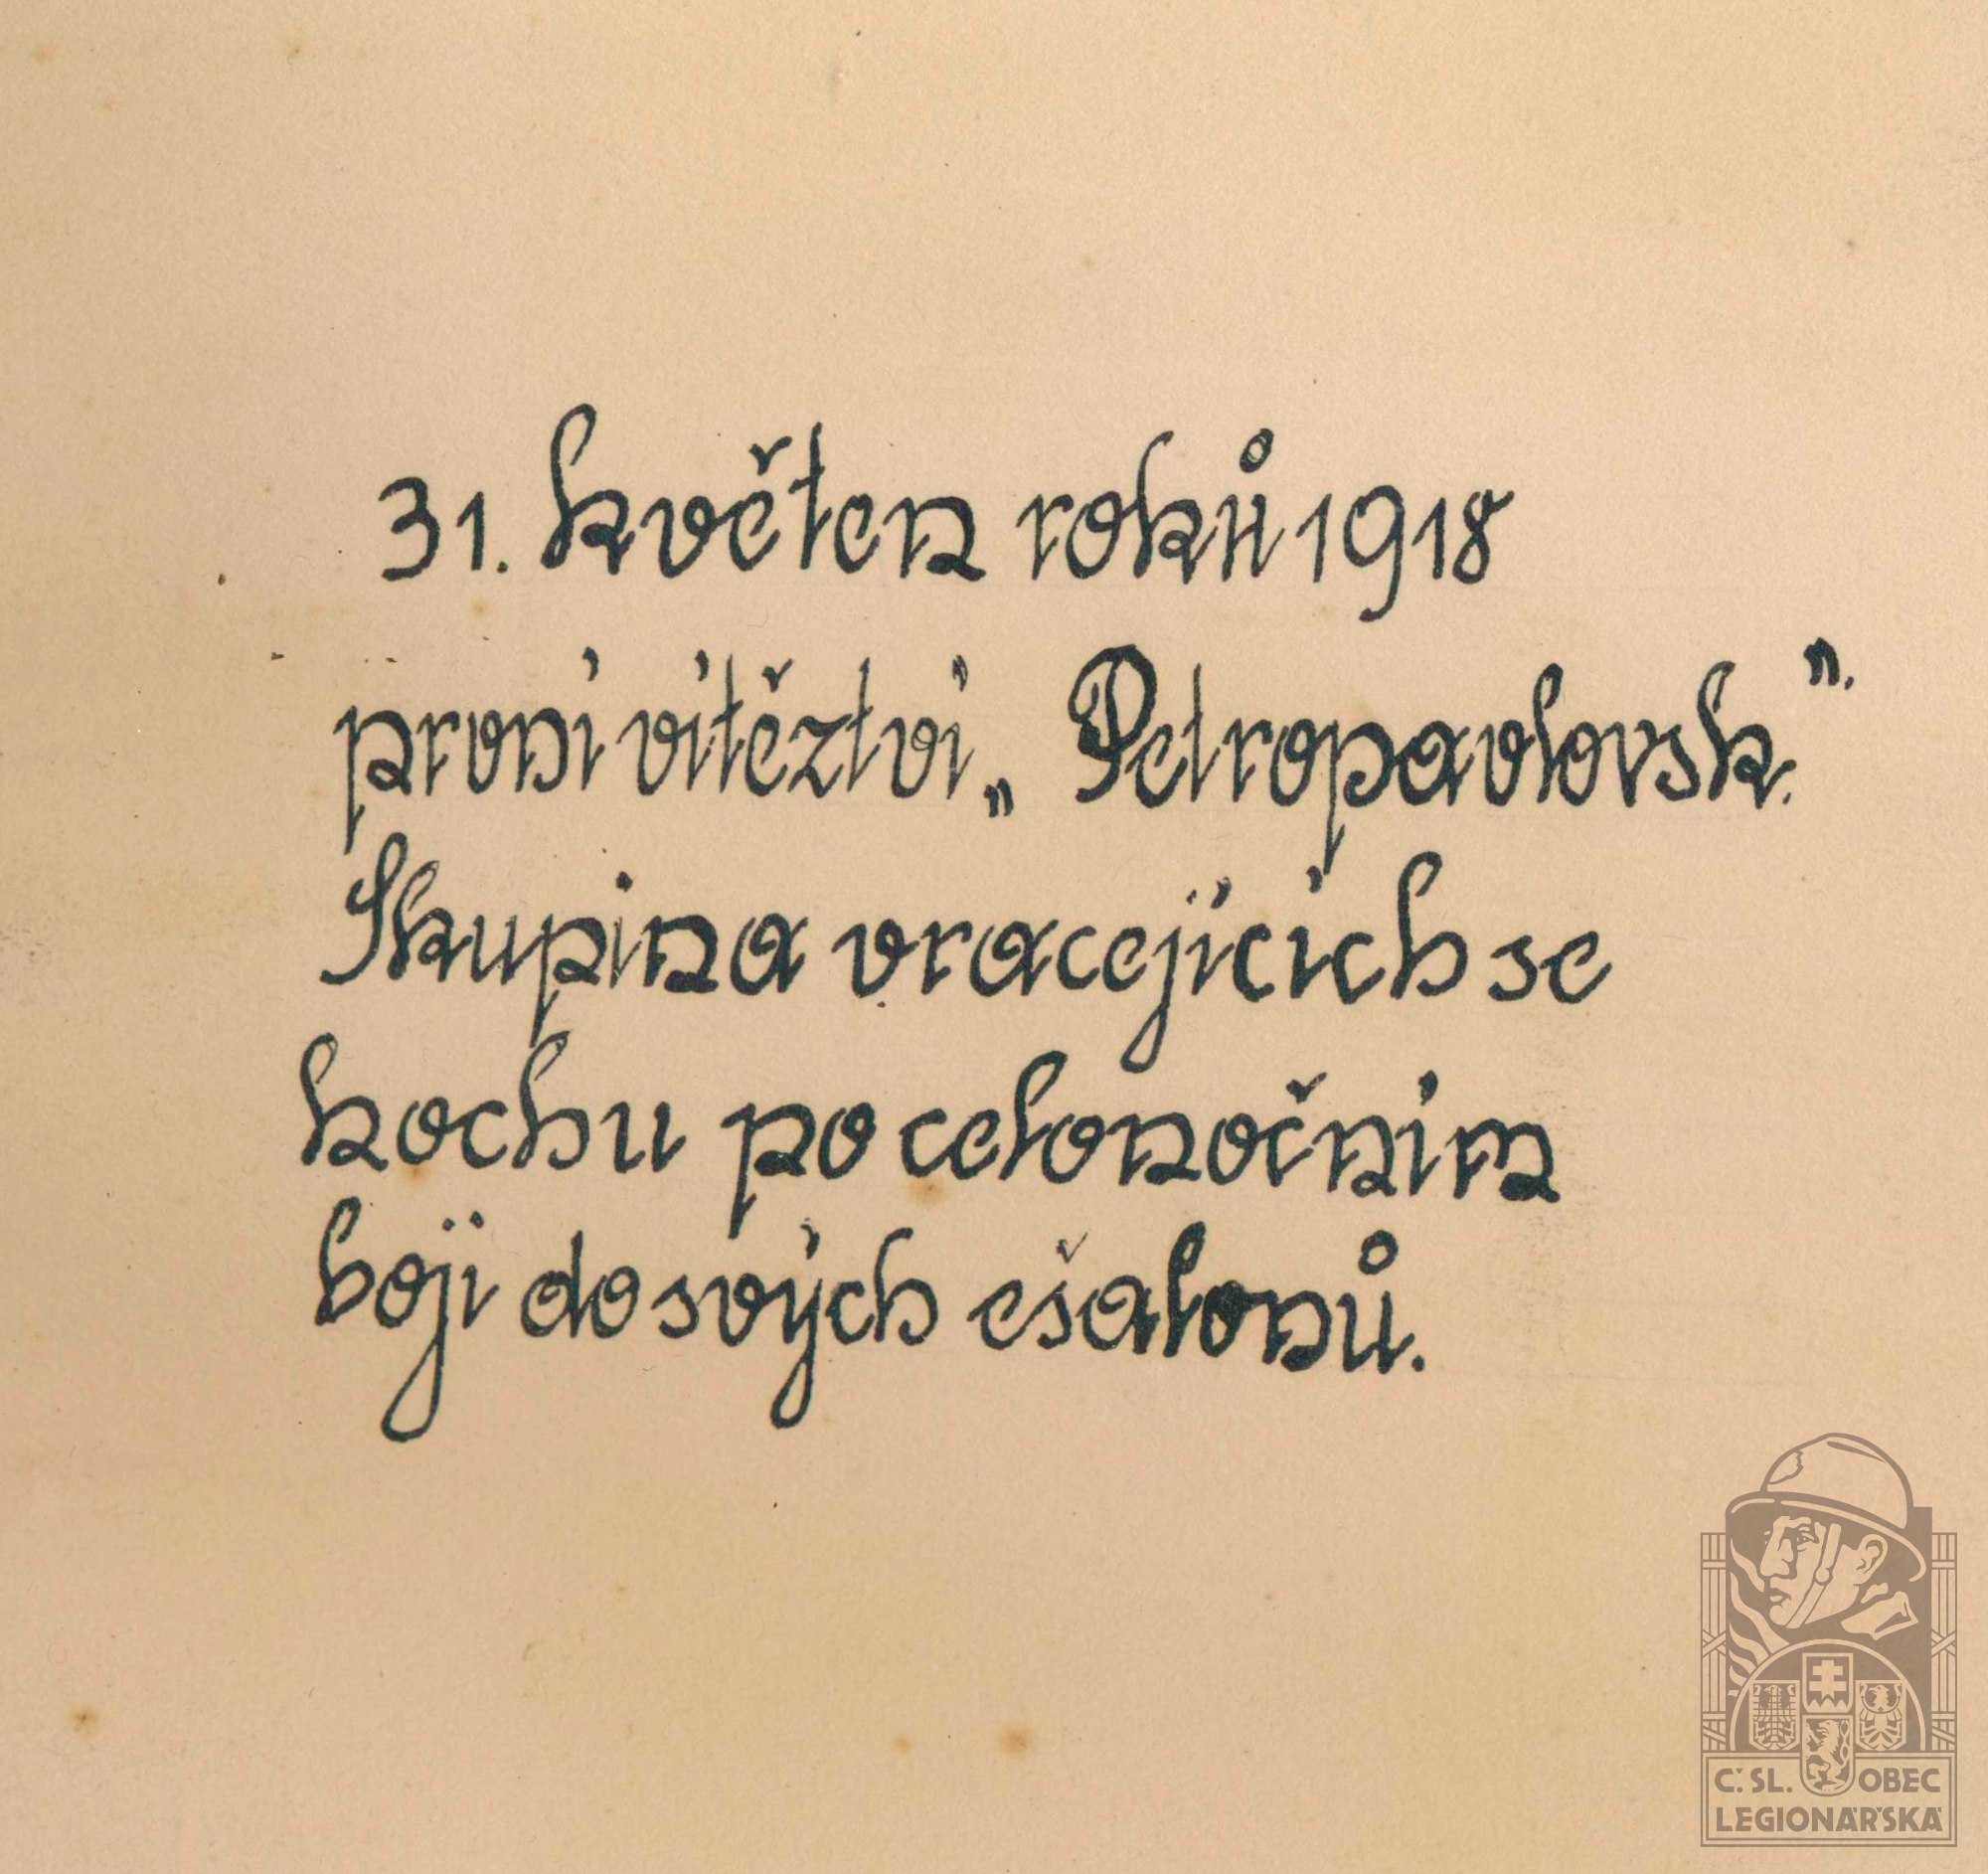 31. květen roků 1918
první vítěztví „Petropavlovsk."
Skupina vracejících se
hochu po celonočním
boji do svých ešalonů.
Č. SL. OBEC
LEGIONÁŘSKÁ